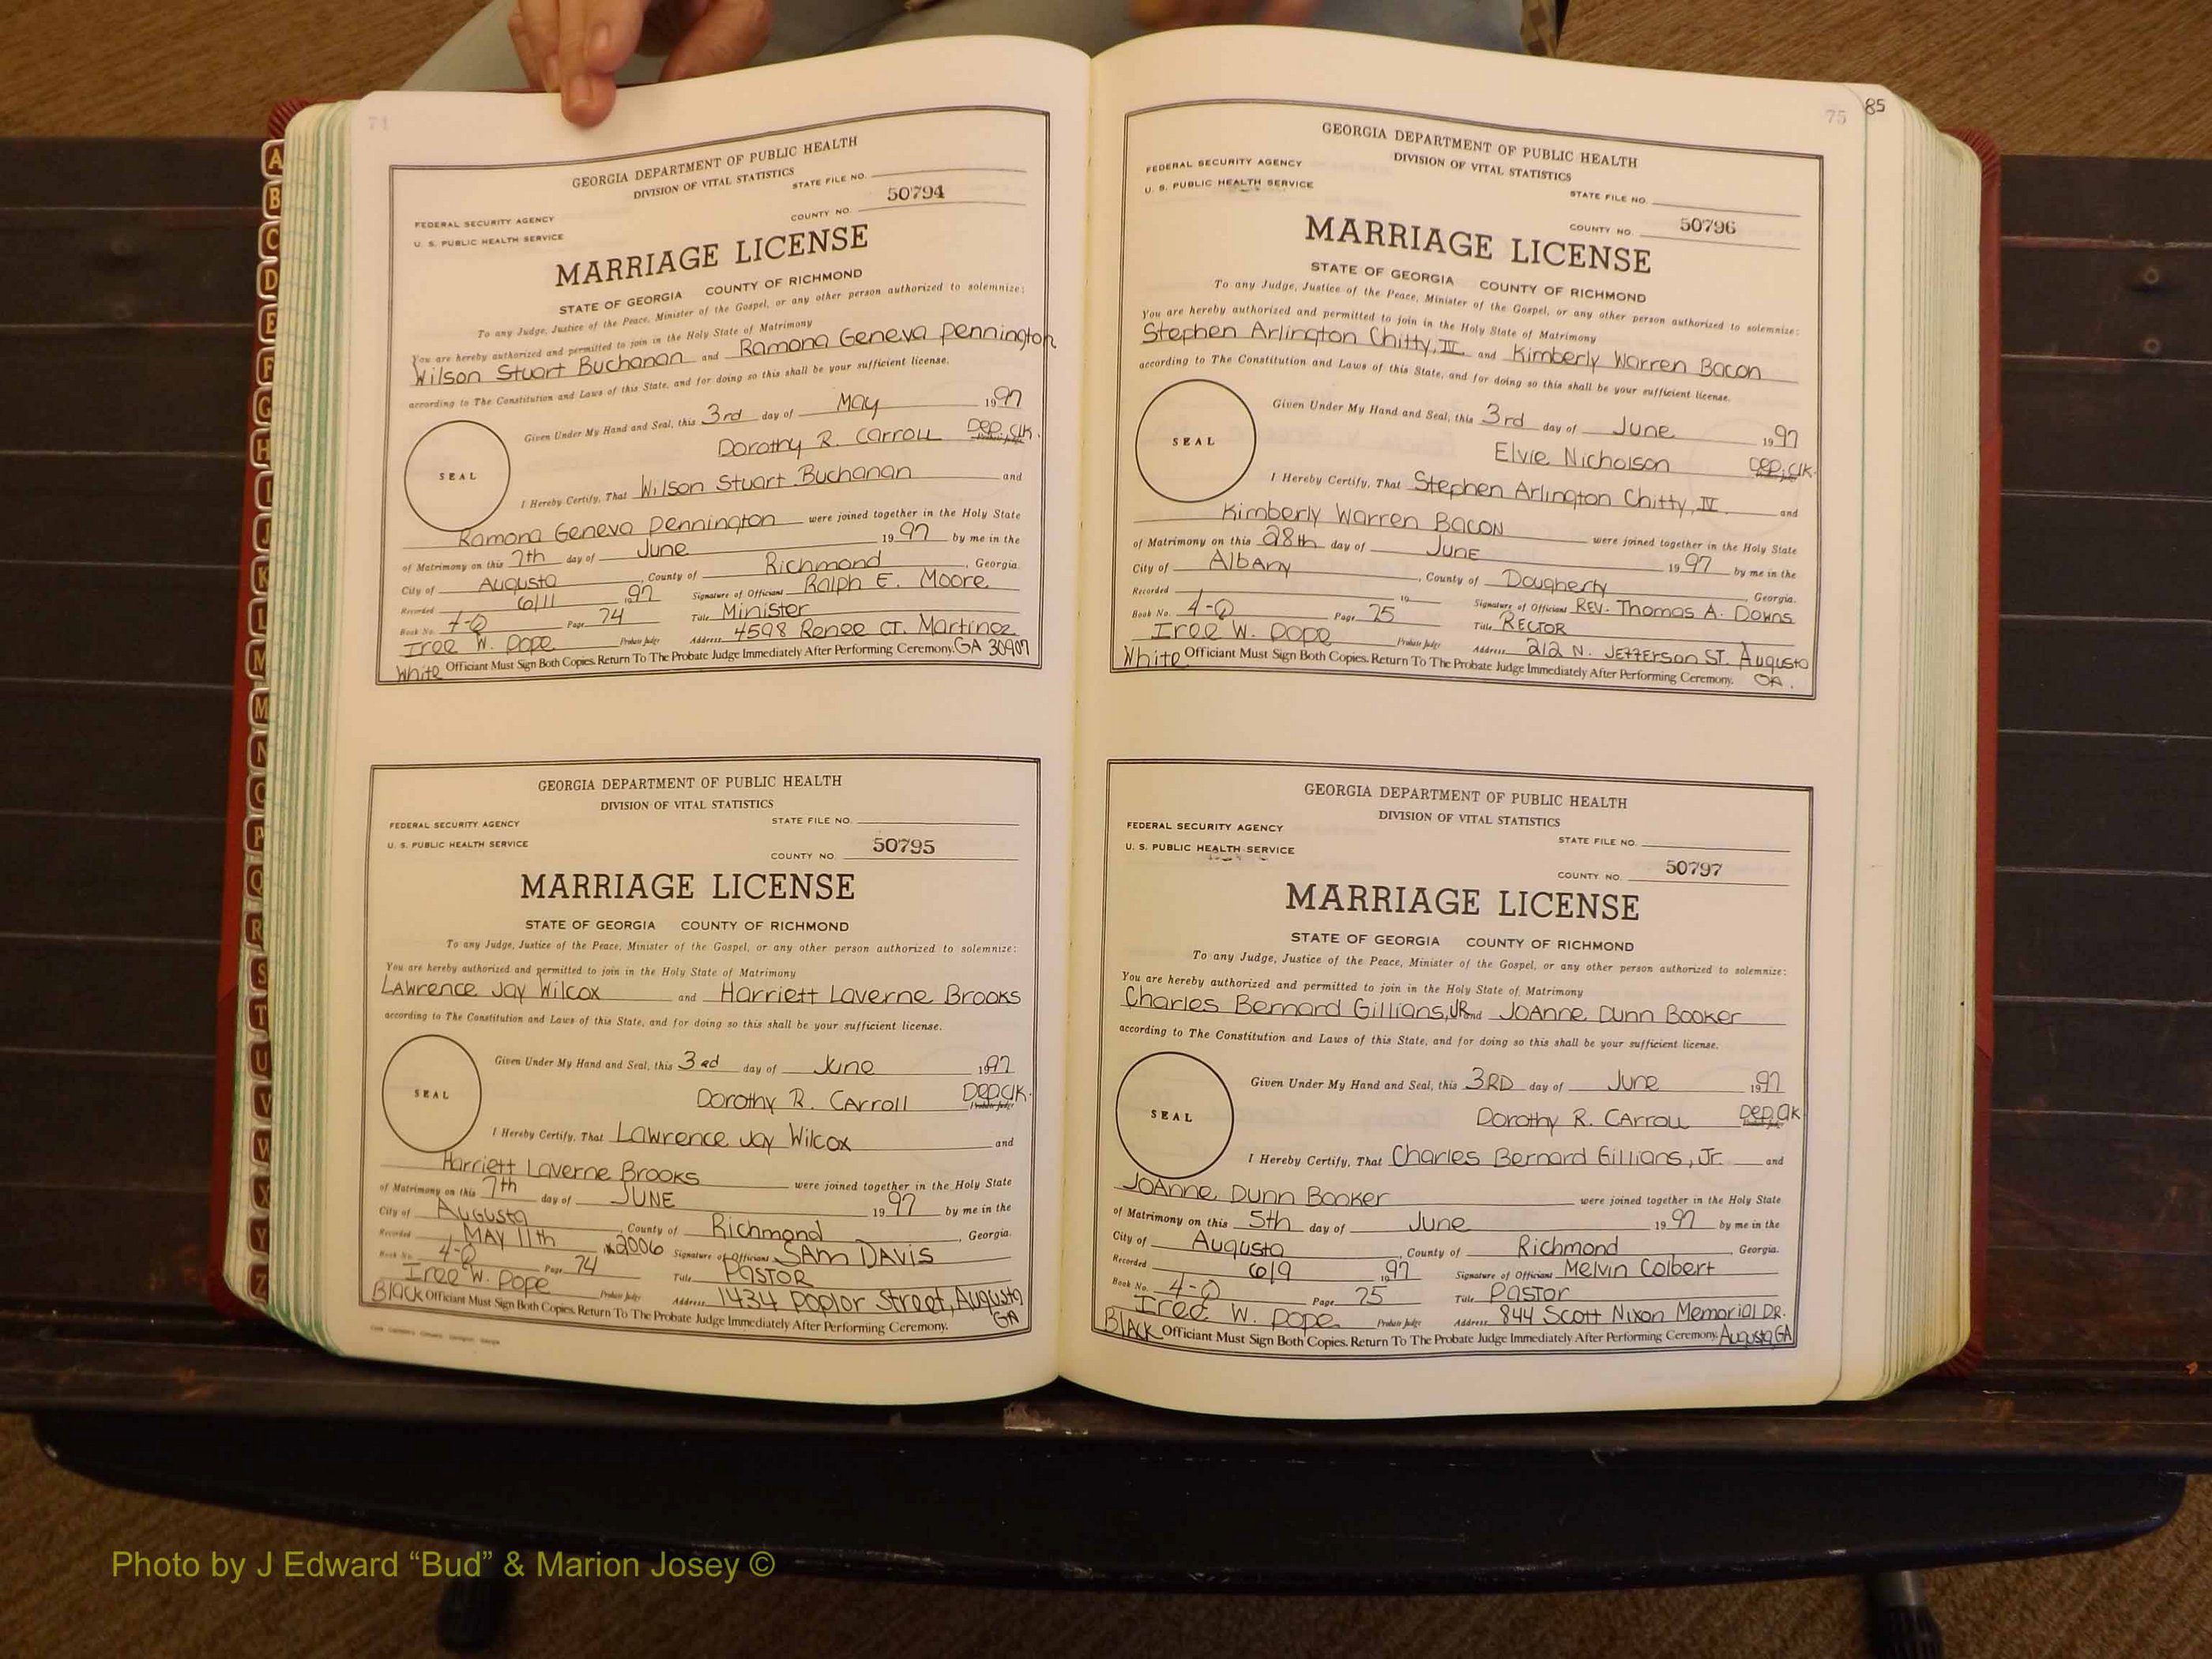 74
GEORGIA DEPARTMENT OF PUBLIC HEALTH
DIVISION OF VITAL STATISTICS
STATE FILE NO.
FEDERAL SECURITY AGENCY
U. S. PUBLIC HEALTH SERVICE
COUNTY NO. 50794
MARRIAGE LICENSE
STATE OF GEORGIA COUNTY OF RICHMOND
To any Judge, Justice of the Peace, Minister of the Gospel, or any other person authorized to solemnize:
You are hereby authorized and permitted to join in the Holy State of Matrimony
Wilson Stuart Buchanan and Ramona Geneva Pennington
according to The Constitution and Laws of this State, and for doing so this shall be your sufficient license.
Given Under My Hand and Seal, this 3rd day of May 1997
Dorothy R. Carroll Dep. Clk.
SEAL
I Hereby Certify, That Wilson Stuart Buchanan and
Ramona Geneva Pennington were joined together in the Holy State
of Matrimony on this 7th day of June 1997 by me in the
City of Augusta, County of Richmond, Georgia.
Recorded 6/11 1997 Signature of Officiant Ralph E. Moore
Book No. 4-Q Page 74 Title Minister
Iree W. Pope Probate Judge Address 4598 Renee CT. Martinez
White Officiant Must Sign Both Copies. Return To The Probate Judge Immediately After Performing Ceremony. GA 30907
GEORGIA DEPARTMENT OF PUBLIC HEALTH
DIVISION OF VITAL STATISTICS
FEDERAL SECURITY AGENCY STATE FILE NO.
U. S. PUBLIC HEALTH SERVICE COUNTY NO. 50795
MARRIAGE LICENSE
STATE OF GEORGIA COUNTY OF RICHMOND
To any Judge, Justice of the Peace, Minister of the Gospel, or any other person authorized to solemnize:
You are hereby authorized and permitted to join in the Holy State of Matrimony
Lawrence Jay Wilcox and Harriett Laverne Brooks
according to The Constitution and Laws of this State, and for doing so this shall be your sufficient license.
Given Under My Hand and Seal, this 3rd day of June 1997
Dorothy R. Carroll Dep. Clk.
SEAL
I Hereby Certify, That Lawrence Jay Wilcox and
Harriett Laverne Brooks were joined together in the Holy State
of Matrimony on this 7th day of JUNE 1997 by me in the
City of Augusta, County of Richmond, Georgia.
Recorded MAY 11th 2006 Signature of Officiant SAM DAVIS
Book No. 4-Q Page 74 Title PASTOR
Iree W. Pope Probate Judge Address 1434 Poplar Street, Augusta
Black Officiant Must Sign Both Copies. Return To The Probate Judge Immediately After Performing Ceremony. GA
75 85
GEORGIA DEPARTMENT OF PUBLIC HEALTH
FEDERAL SECURITY AGENCY DIVISION OF VITAL STATISTICS
U. S. PUBLIC HEALTH SERVICE STATE FILE NO.
COUNTY NO. 50796
MARRIAGE LICENSE
STATE OF GEORGIA COUNTY OF RICHMOND
To any Judge, Justice of the Peace, Minister of the Gospel, or any other person authorized to solemnize:
You are hereby authorized and permitted to join in the Holy State of Matrimony
Stephen Arlington Chitty, IV and Kimberly Warren Bacon
according to The Constitution and Laws of this State, and for doing so this shall be your sufficient license.
Given Under My Hand and Seal, this 3rd day of June 1997
Elvie Nicholson Dep. Clk.
SEAL
I Hereby Certify, That Stephen Arlington Chitty, IV and
Kimberly Warren BACON were joined together in the Holy State
of Matrimony on this 28th day of JUNE 1997 by me in the
City of Albany, County of Dougherty, Georgia.
Recorded 19 Signature of Officiant REV. Thomas A. Downs
Book No. 4-Q Page 75 Title RECTOR
Iree W. Pope Probate Judge Address 212 N. JEFFERSON ST. Augusta
White Officiant Must Sign Both Copies. Return To The Probate Judge Immediately After Performing Ceremony. GA.
GEORGIA DEPARTMENT OF PUBLIC HEALTH
DIVISION OF VITAL STATISTICS
FEDERAL SECURITY AGENCY STATE FILE NO.
U. S. PUBLIC HEALTH SERVICE COUNTY NO. 50797
MARRIAGE LICENSE
STATE OF GEORGIA COUNTY OF RICHMOND
To any Judge, Justice of the Peace, Minister of the Gospel, or any other person authorized to solemnize:
You are hereby authorized and permitted to join in the Holy State of Matrimony
Charles Bernard Gillians, JR. and JoAnne Dunn Booker
according to The Constitution and Laws of this State, and for doing so this shall be your sufficient license.
Given Under My Hand and Seal, this 3RD day of June 1997
Dorothy R. Carroll Dep. Clk.
SEAL
I Hereby Certify, That Charles Bernard Gillians, Jr. and
JoAnne Dunn Booker were joined together in the Holy State
of Matrimony on this 5th day of June 1997 by me in the
City of Augusta, County of Richmond, Georgia.
Recorded 6/9 1997 Signature of Officiant Melvin Colbert
Book No. 4-Q Page 75 Title Pastor
Iree W. Pope Probate Judge Address 844 Scott Nixon Memorial DR.
Black Officiant Must Sign Both Copies. Return To The Probate Judge Immediately After Performing Ceremony. Augusta, GA
A
B
C
D
E
F
G
H
I
J
K
L
M
M
N
O
P
Q
R
S
T
U
V
W
X
Y
Z
Photo by J Edward “Bud” & Marion Josey ©